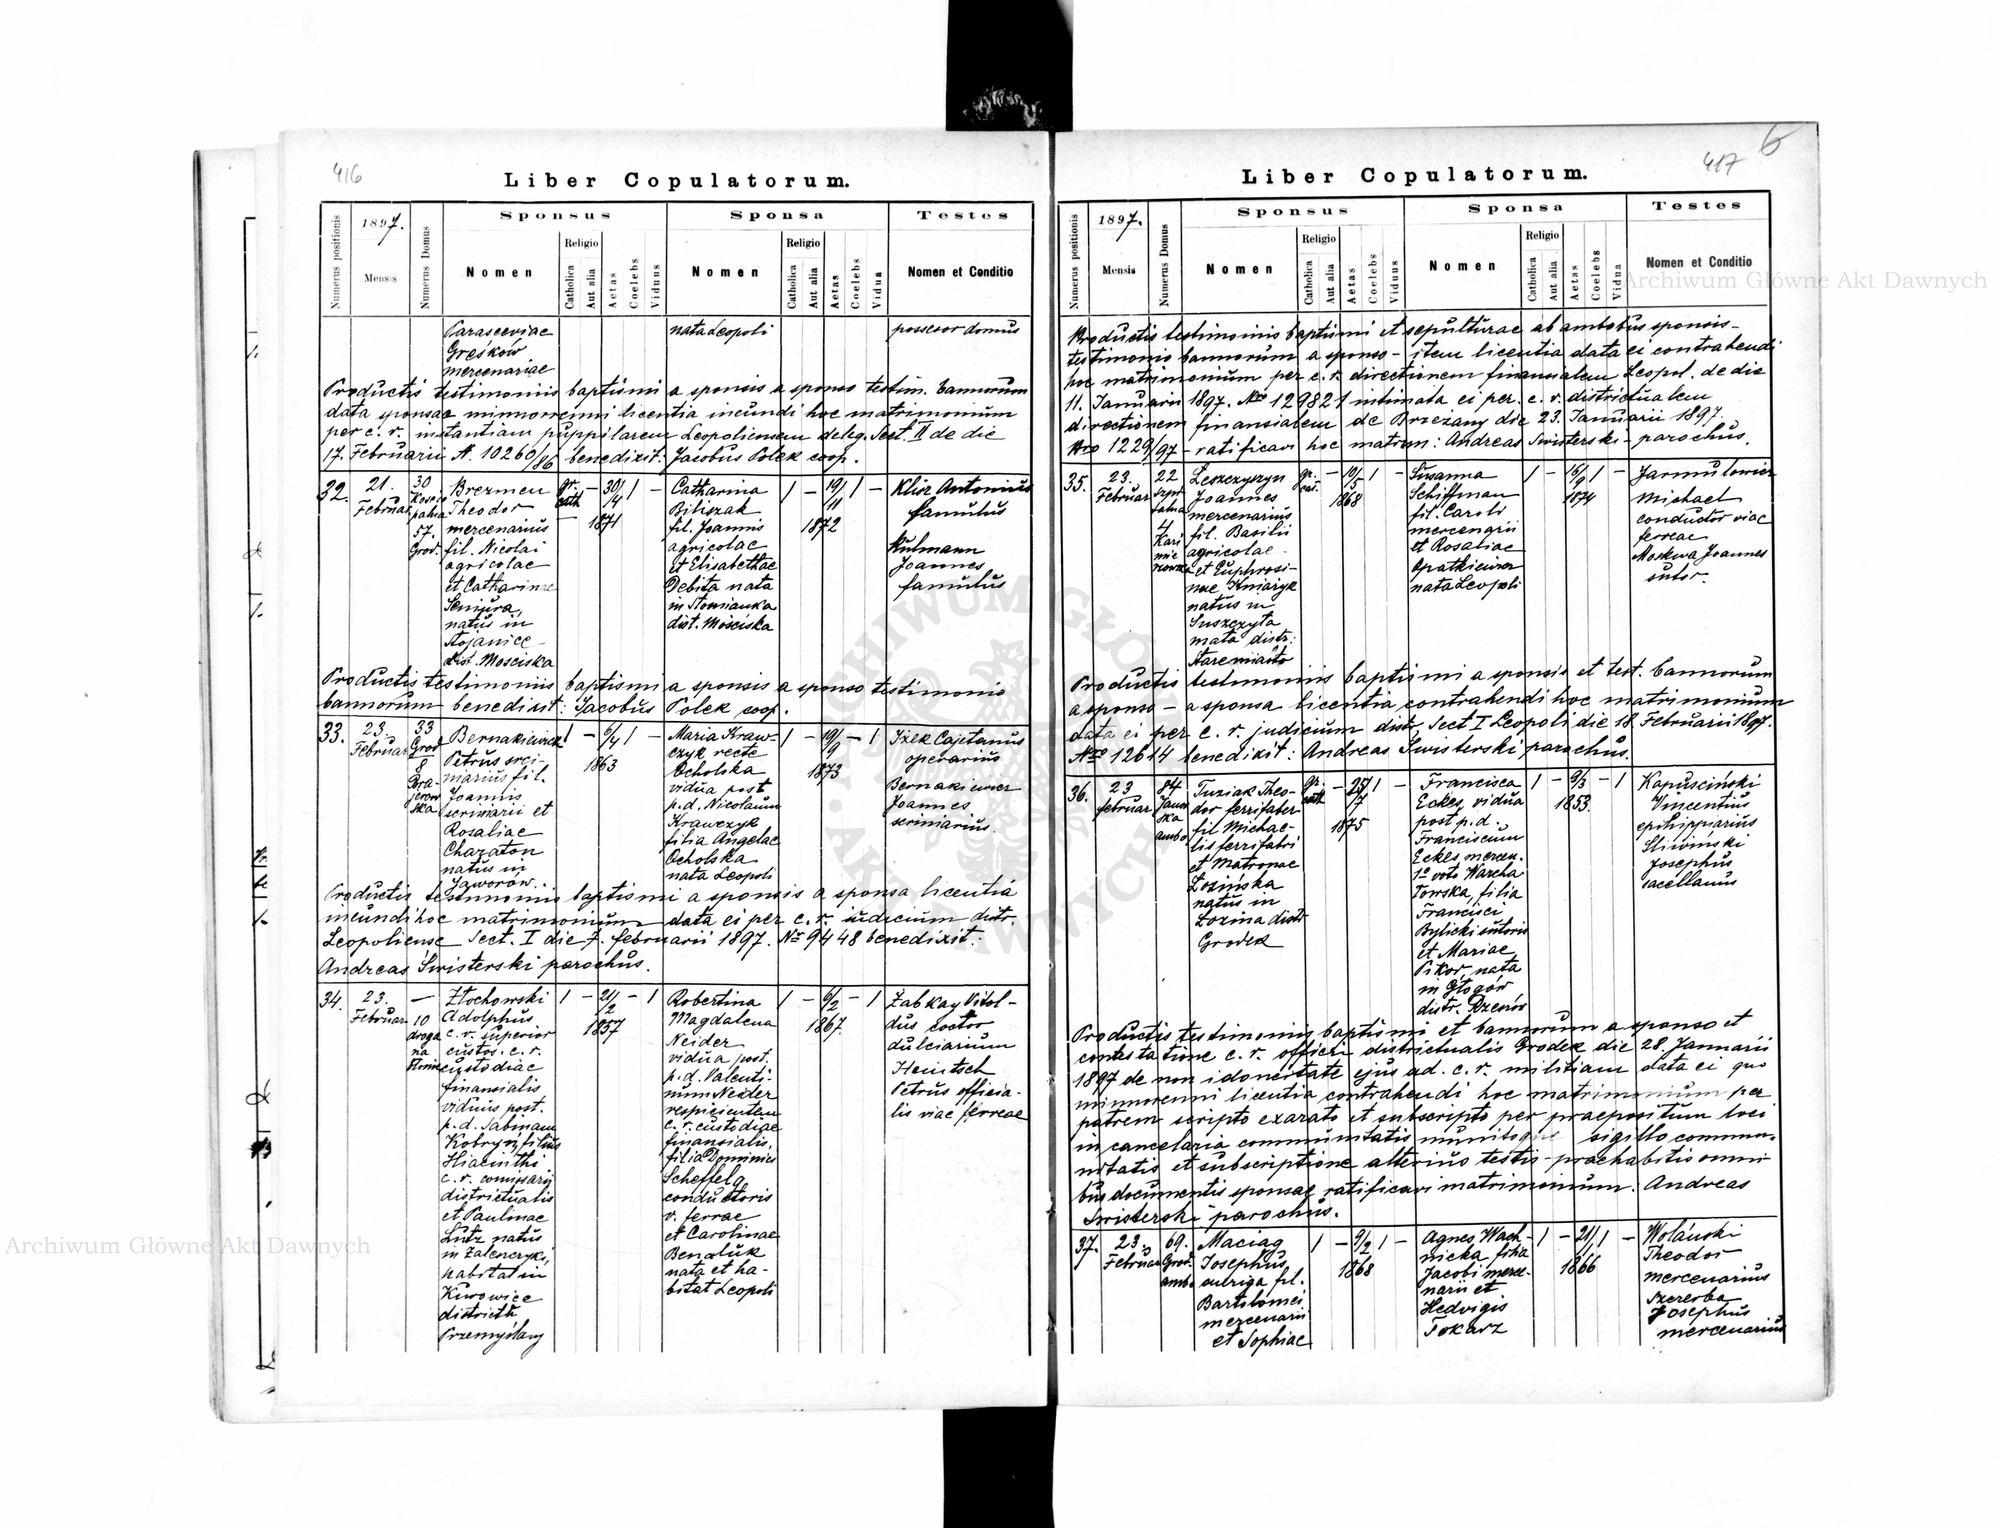 416
Liber Copulatorum.
Numerus positionis
1897.
Mensis
Numerus Domus
Sponsus
Nomen
Religio
Catholica
Aut alia
Aetas
Coelebs
Viduus
Sponsa
Nomen
Religio
Catholica
Aut alia
Aetas
Coelebs
Vidua
Testes
Nomen et Conditio
Parasceviae
Greśków
mercenariae
nata Leopoli
possessor domus
Productis testimoniis baptismi a sponsis a sponso testim. bannorum
data sponsae minnorenni licentia incundi hoc matrimonium
per c. r. instantiam puppilarem Leopoliensem deleg. Sect. II de die
17. Februarii N. 10260/86 benedixit: Jacobus Polek coop.
32.
21.
Februar
30
37.
Grod.
Brezmen
Theodor
mercenarius
fil. Nicolai
agricolae
et Catharinae
Seniura,
natus in
Stojanice
dist. Mosciska
gr.
cath
– 30/4 1 –
1871
Catharina
Biliszak
fil. Joannis
agricolae
et Elisabethae
Debita nata
in Słomianka
dist. Mościska
1 – 19/11 1 –
1872
Klisz Antonius
famulus
Kulmann
Joannes
famulus
Productis testimoniis baptismi a sponsis a sponso testimonio
bannorum benedixit: Jacobus Polek coop.
33.
23.
Februar
33
Grod
8
Bernakiewicz
Petrus scri-
niarius fil.
Joannis
scriniarii et
Rosaliae
Charaton
natus in
Jaworow.
1 – 6/4 1 –
1863
Maria Kraw-
czyk recte
Ocholska
vidua post
p. d. Nicolaum
Krawczyk
filia Angelae
Ocholska
nata Leopoli
1 – 19/9 – 1
1873
Iżek Cajetanus
operarius
Bernakiewicz
Joannes
scriniarius.
Productis testimoniis baptismi a sponsis a sponsa licentiá
incundi hoc matrimonium data ei per c. r. iudicium distr.
Leopoliense Sect. I die 7. februarii 1897. Nº 9448 benedixit:
Andreas Świsterski parochus.
34.
23.
Februar
–
10
droga
na
Złochowski
Adolphus
c. r. superior
custos. c. r.
custodiae
finansialis
viduus post.
p. d. Sabinam
Kobryn, filius
Hiacinthi
c. r. commisarij
districtualis
et Paulinae
Lutz natus
in Zaleszczyki,
habitat in
Kurowice
districtu
Przemyślany
1 – 21/2 – 1
1857
Robertina
Magdalena
Neider
vidua post.
p. d. Valenti-
num Neider
respicientem
c. r. custodiae
finansialis,
filia Dominici
Scheffel
conductoris
v. ferrae
et Carolinae
Benaluk
nata et ha-
bitat Leopoli
1 – 6/2 – 1
1867.
Żabkay Vitol-
dus coctor
dulciarium
Hentsch
Petrus officia-
lis viae ferreae
417
6
Liber Copulatorum.
Numerus positionis
1897.
Mensis
Numerus Domus
Sponsus
Nomen
Religio
Catholica
Aut alia
Aetas
Coelebs
Viduus
Sponsa
Nomen
Religio
Catholica
Aut alia
Aetas
Coelebs
Vidua
Testes
Nomen et Conditio
Productis testimoniis baptismi et sepulturae ab ambobus sponsis –
testimonio bannorum a sponso – item licentia data ei contrahendi
hoc matrimonium per c. r. directionem finansialem Leopol. de die
11. Januarii 1897. Nro 129821 intimata ei per. c. r. districtualem
directionem finansialem de Brzeżany die 23. Januarii 1897.
Nro 1229/97 – ratificavi hoc matrim: Andreas Świsterski – parochus.
35.
23.
Februar
22
4
Leszczyszyn
Joannes
mercenarius
fil. Basilii
agricolae
et Euphrosi-
nae Kniażyk
natus in
Suszczyta
mata distr:
Staremiasto
gr.
cat.
– 10/5 1 –
1868
Susanna
Schiffman
fil. Caroli
mercenarii
et Rosaliae
Opatkiewicz
nata Leopoli
1 – 16/9 1 –
1874
Jarmulowicz
Michael
conductor viae
ferreae
Moskwa Joannes
sutor.
Productis testimoniis baptismi a sponsis et test. bannorum
a sponso – a sponsa licentia contrahendi hoc matrimonium
data ei per c. r. judicium distr. Sect I Leopoli die 18. Februarii 1897.
Nro 12614 benedixit: Andreas Świsterski parochus.
36.
23
februar
84
Janow
ska
ambo
Turiak Theo-
dor ferrifaber
fil Michae-
lis ferrifabri
et Matronae
Łozińska
natus in
Łozina distr
Grodek
Gr.
cath
– 25/7 1 –
1875
Francisca
Eckes, vidua
post p. d.
Franciscum
Eckes mercen.
1º voto Warcha
Towska, filia
Francisci
Bylicki sutoris
et Mariae
Pikor, nata
in Głogów
distr. Rzeszów
1 – 9/3 – 1
1853.
Kapuściński
Vincentius
ephippiarius
Sliwinski
Josephus
sacellanus
Productis testimoniis baptismi et bannorum a sponso et
contestatione c. r. officii districtualis Grodek die 28. Januarii
1897 de non idoneitate ejus ad. c. r. militiam data ei quo
minnorenni licentia contrahendi hoc matrimonium per
patrem scripto exarato et subscripto per praepositum loci
in cancelaria communitatis munitoque sigillo commu-
nitatis et subscriptione alterius testis – praehabitis omni-
bus documentis sponsae ratificavi matrimonium. Andreas
Swisterski parochus.
37.
23.
Februar
69.
Grod.
ambo
Maciag
Josephus,
auriga fil.
Bartolomei
mercenarii
et Sophiae
1 – 9/2 1 –
1868
Agnes Wach-
nicka filia
Jacobi merce-
narii et
Hedvigis
Tokarz
1 – 21/1 1 –
1866
Wolánski
Theodor
mercenarius
Szczerba
Josephus
mercenarius
Archiwum Główne Akt Dawnych
Archiwum Główne Akt Dawnych